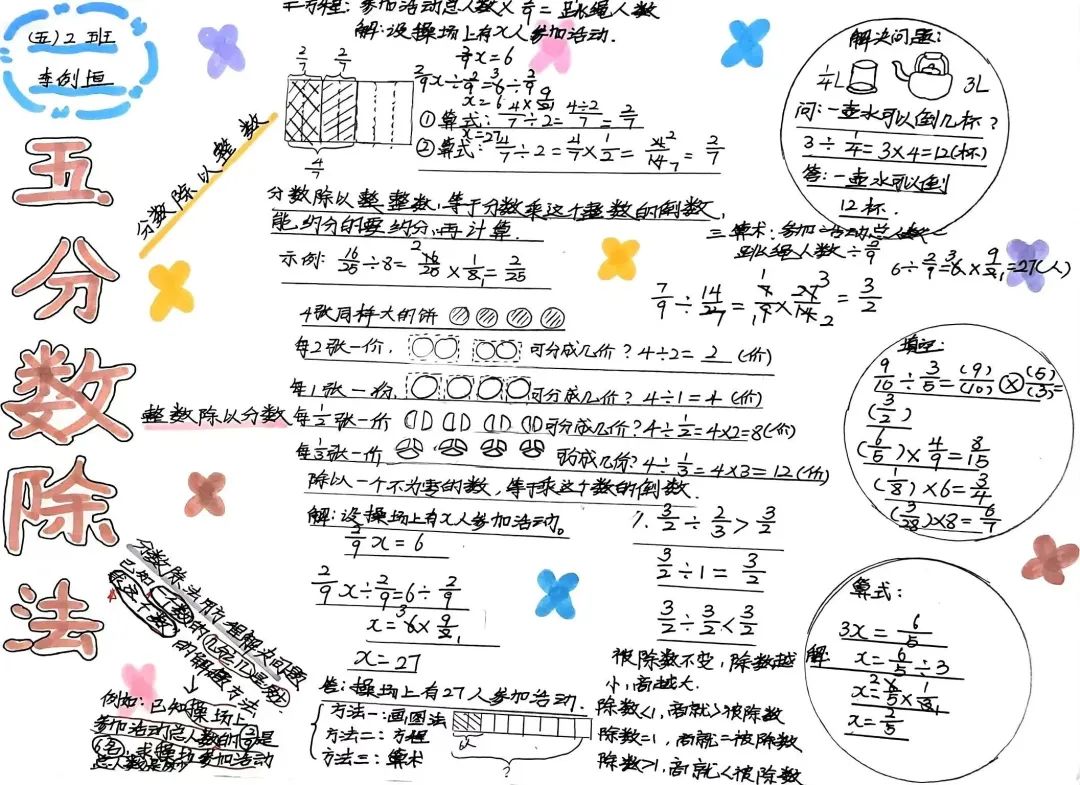 (五)2班
李例恒
五分数除法
分数除以整数
二方程：参加活动总人数×2/9=跳绳人数
解：设操场上有x人参加活动.
2/9x=6
2/9x÷2/9=6÷2/9
x=6×9/2
x=27
2/7 2/7
4/7
①算式：4/7÷2=4÷2/7=2/7
②算式：4/7÷2=4/7×1/2=4/14=2/7
分数除以整数,等于分数乘这个整数的倒数,
能约分的要约分,再计算.
示例：16/25÷8=16/25×1/8=2/25
解决问题：
1/4L 3L
问：一壶水可以倒几杯？
3÷1/4=3×4=12(杯)
答：一壶水可以倒
12杯.
三算术：参加活动总人数=
跳绳人数÷2/9
6÷2/9=6×9/2=27(人)
7/9÷14/27=7/9×27/14=3/2
4张同样大的饼
每2张一份, 可分成几份？4÷2=2(份)
每1张一份, 可分成几份？4÷1=4(份)
整数除以分数
每1/2张一份 可分成几份？4÷1/2=4×2=8(份)
每1/3张一份 可分成几份？4÷1/3=4×3=12(份)
除以一个不为零的数,等于乘这个数的倒数.
填空：
9/10÷3/5=(9)/(10)×(5)/(3)=
(3/2)
(6/5)×4/9=8/15
(1/8)×6=3/4
(3/28)×8=6/7
解：设操场上有x人参加活动。
2/9x=6
2/9x÷2/9=6÷2/9
x=6×9/2
x=27
答：操场上有27人参加活动.
方法一：画图法
方法二：方程
方法三：算术
6名
?
1.3/2÷2/3>3/2
3/2÷1=3/2
3/2÷3/2<3/2
被除数不变,除数越
小,商越大.
除数<1,商就>被除数
除数=1,商就=被除数
除数>1,商就<被除数
算式：
3x=6/5
解：x=6/5÷3
x=6/5×1/3
x=2/5
分数除法
解决问题
已知一个数的几分几是多少
求这个数
的解题方法.
例如：已知操场上
参加活动总人数的2/9是
6名,求操场参加活动
总人数是多少